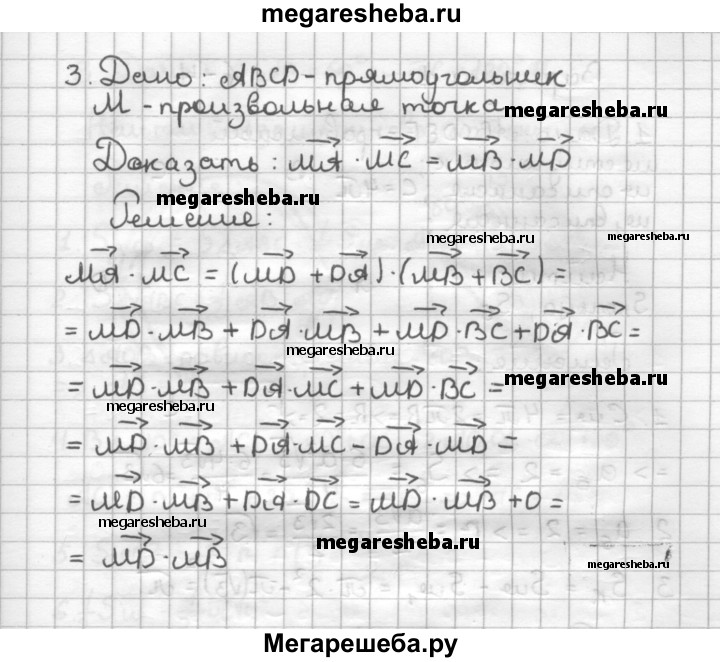 megaresheba.ru
3. Дано: ABCD - прямоугольник
M - произвольная точка
megaresheba.ru
Доказать: MA · MC = MB · MD
megaresheba.ru
Решение:
megaresheba.ru
MA · MC = (MD + DA) · (MB + BC) =
= MD · MB + DA · MB + MD · BC + DA · BC =
megaresheba.ru
= MD · MB + DA · MC + MD · BC =
megaresheba.ru
megaresheba.ru
= MD · MB + DA · MC - DA · MD =
= MD · MB + DA · DC = MD · MB + 0 =
megaresheba.ru
megaresheba.ru
= MD · MB
Мегарешеба.ру